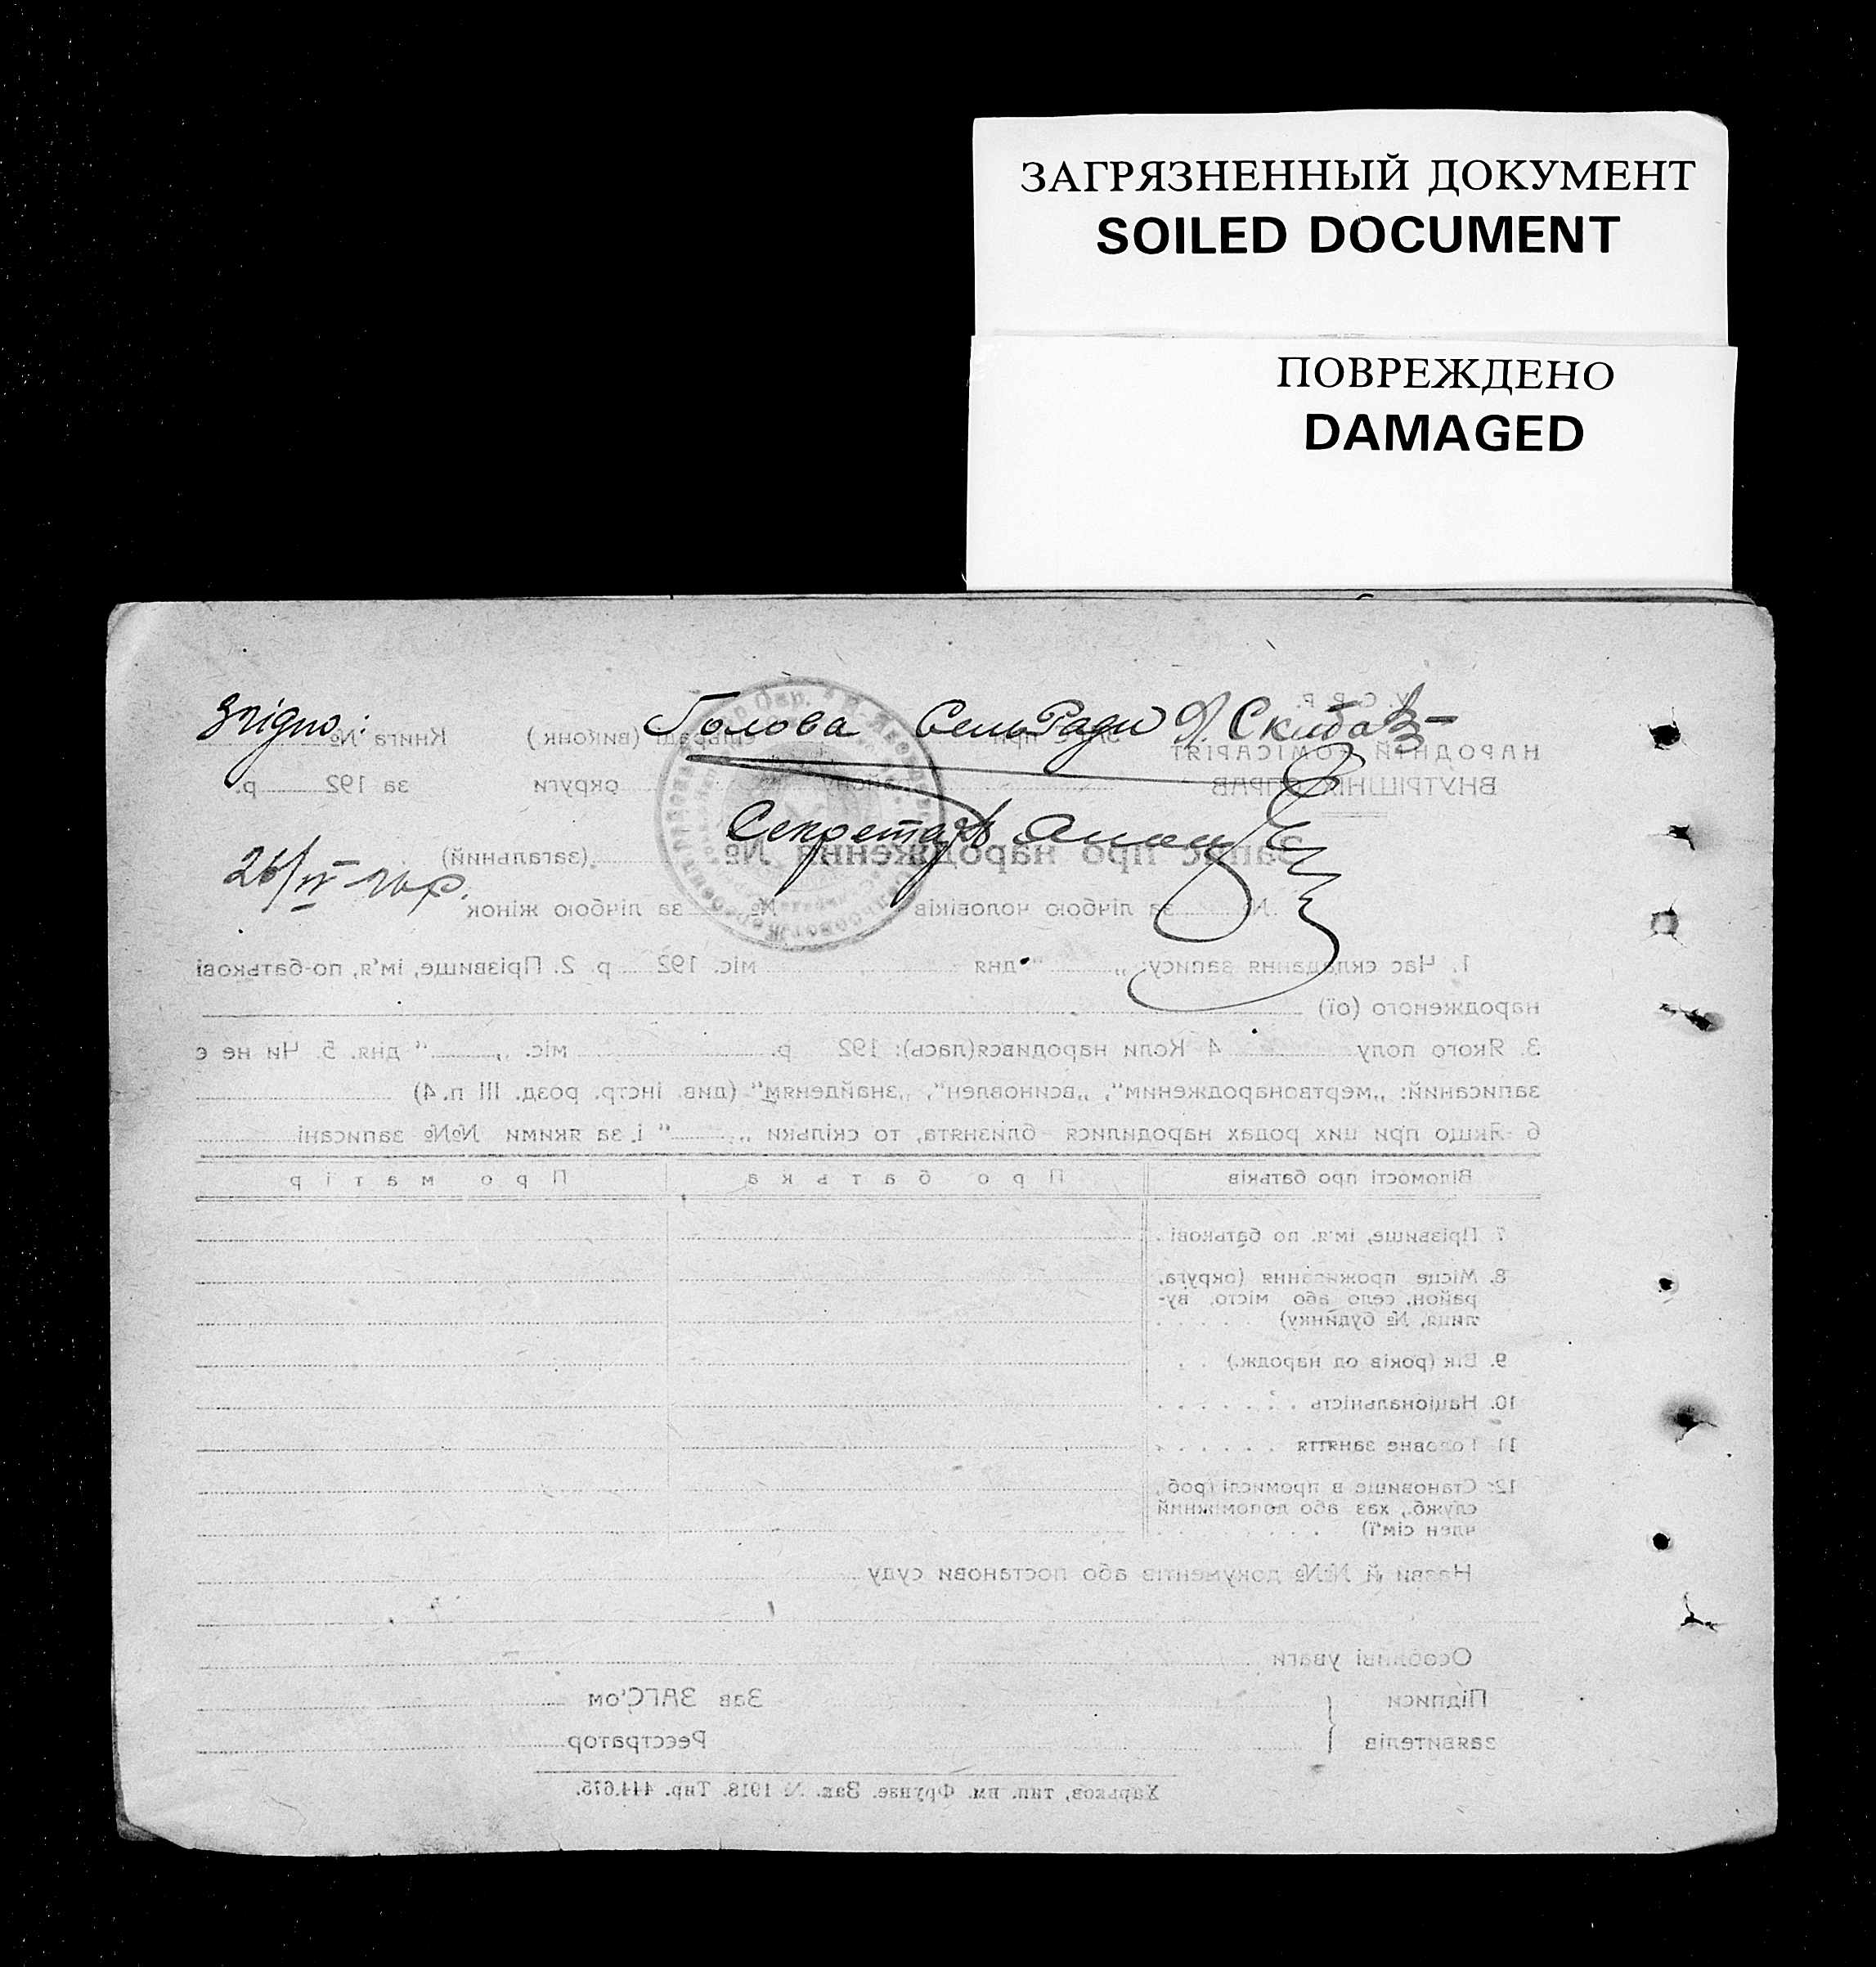 ЗАГРЯЗНЕННЫЙ ДОКУМЕНТ
SOILED DOCUMENT
ПОВРЕЖДЕНО
DAMAGED
Згідно: Голова СельРади Скиба
Секретарь
26/IV
У. С. Р. Р.
НАРОДНІЙ КОМІСАРІЯТ
ВНУТРІШНІХ СПРАВ
при сільраді (виконк.) Книга №
району округи за 192 р.
Запис про народження № (загальний)
№ за лічбою чоловіків № за лічбою жінок
1. Час складання запису: „ “ дня міс. 192 р. 2. Прізвище, ім'я, по-батькові
народженого (ої)
3. Якого полу 4 Коли народився(лась): 192 р. міс. „ “ дня. 5. Чи не є
записаний: „мертвонародженим“, „всиновлен“, „знайденям“ (див. інстр. розд. III п. 4)
6 Якщо при цих родах народилися близнята, то скільки „ “ і за якими №№ записані
Відомості про батьків Про батька Про матір
7 Прізвище, ім'я, по батькові
8. Місце проживання (округа,
район, село або місто, ву-
лиця, № будинку)
9. Вік (років од народж.)
10. Національність
11 Головне заняття
12. Становище в промислі (роб.,
служб., хаз або допоміжний
член сім'ї)
Назви й №№ документів або постанови суду
Особливі уваги
Підписи Зав ЗАГС'ом
заявителів Реєстратор
Харьков, тип. им. Фрунзе. Зак. № 1918. Тир. 444.675.